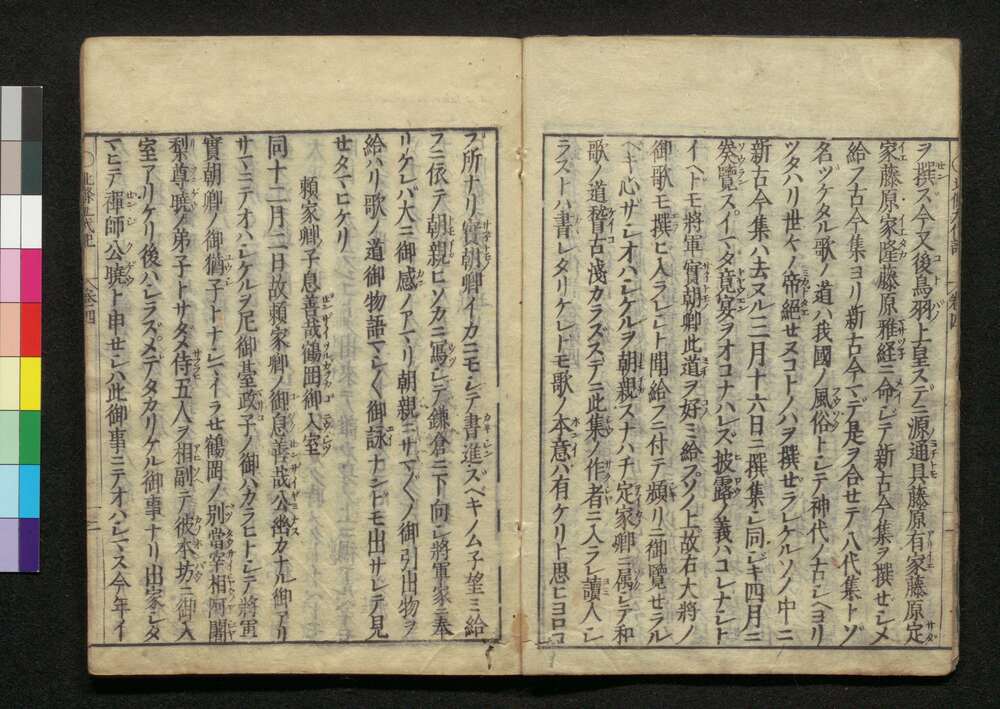 ヲ撰ス今又後鳥羽上皇スデニ源通具藤原有家藤原定
家藤原家隆藤原雅経ニ命シテ新古今集ヲ撰セシメ
給フ古今集ヨリ新古今マデ是ヲ合セテ八代集トゾ
名ヅケタル歌ノ道ハ我國ノ風俗トシテ神代ノ古シヘヨリ
ツタハリ世々ノ帝絕セヌコトノハヲ撰セラレケルソノ中ニ
新古今集ハ去ヌル三月十六日ニ撰集シ同シキ四月ニ
奏覽スイマタ竟宴ヲオコナハレズ披露ノ義ハコレナシト
イヘトモ將軍實朝卿此道ヲ好ミ給フソノ上故右大將ノ
御歌モ撰ヒ入ラレシト聞給フニ付テ頻リニ御覽セラル
ヘキ心ザシオハシケルヲ朝親スナハチ定家卿ニ属シテ和
歌ノ道稽古淺カラズスデニ此集ノ作者ニ入ラレ讀人シ
ラストハ書レタリケレトモ歌ノ本意ハ有ケリト思ヒヨロコ
フ所ナリ實朝卿イカニモシテ書進ズベキノム子望ミ給
フニ依テ朝親ヒソカニ寫シテ鎌倉ニ下向シ將軍家ニ奉
リケレバ大ニ御感ノアマリ朝親ニサマ〲ノ御引出物ヲ
給ハリ歌ノ道御物語マシ〱御詠ナンドモ出サレテ見
セタマヒケリ
賴家卿ノ子息善哉鶴岡御入室
同十二月二日故賴家卿ノ御息善哉公幽カナル御アリ
サマニテオハシケルヲ尼御臺政子ノ御ハカラヒトシテ將軍
實朝卿ノ御猶子トナシマイラせ鶴岡ノ別當宰相阿闍
梨尊曉ノ弟子トサダメ侍五人ヲ相副テ彼本坊ニ御入
室アリケリ後ハシラズメデタカリケル御事ナリ出家シタ
マヒテ禪師公曉ト申せシハ此御事ニテオハシマス今年イ